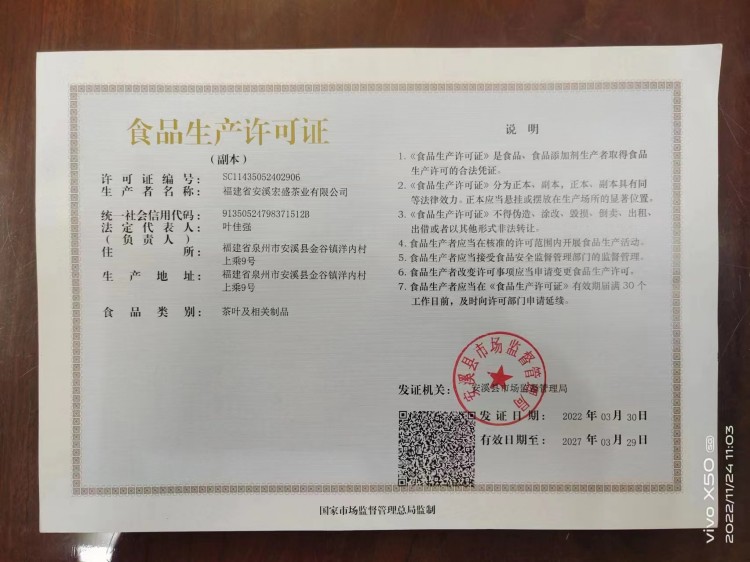 食品生产许可证
(副本)
许可证编号： SC11435052402906
生产者名称： 福建省安溪宏盛茶业有限公司
统一社会信用代码： 91350524798371512B
法定代表人： 叶佳强
(负责人)
住所： 福建省泉州市安溪县金谷镇洋内村
上乘9号
生产地址： 福建省泉州市安溪县金谷镇洋内村
上乘9号
食品类别： 茶叶及相关制品
说明
1.《食品生产许可证》是食品、食品添加剂生产者取得食品
生产许可的合法凭证。
2.《食品生产许可证》分为正本、副本，正本、副本具有同
等法律效力。正本应当悬挂或摆放在生产场所的显著位置。
3.《食品生产许可证》不得伪造、涂改、毁损、倒卖、出租、
出借或者以其他形式非法转让。
4 食品生产者应当在核准的许可范围内开展食品生产活动。
5 食品生产者应当接受食品安全监督管理部门的监督管理。
6 食品生产者改变许可事项应当申请变更食品生产许可。
7 食品生产者应当在《食品生产许可证》有效期届满30个
工作日前，及时向许可部门申请延续。
安溪县市场监督管理局
发证机关： 安溪县市场监督管理局
发证日期： 2022 年 03 月 30 日
有效日期至： 2027 年 03 月 29 日
国家市场监督管理总局监制
vivo X50 5G
2022/11/24 11:03